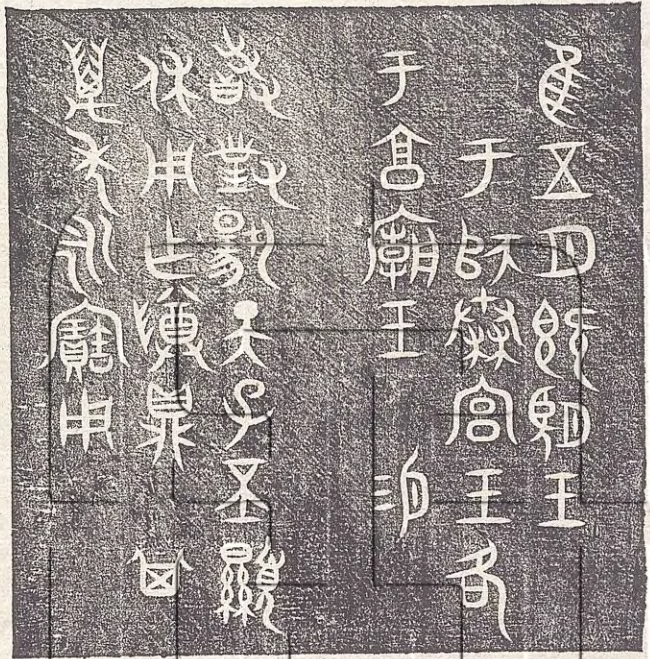 隹五月既望王
于師秦宮王各
于享廟王
敢對揚天子不顯
休用乍尊鼎其
萬年永寶用